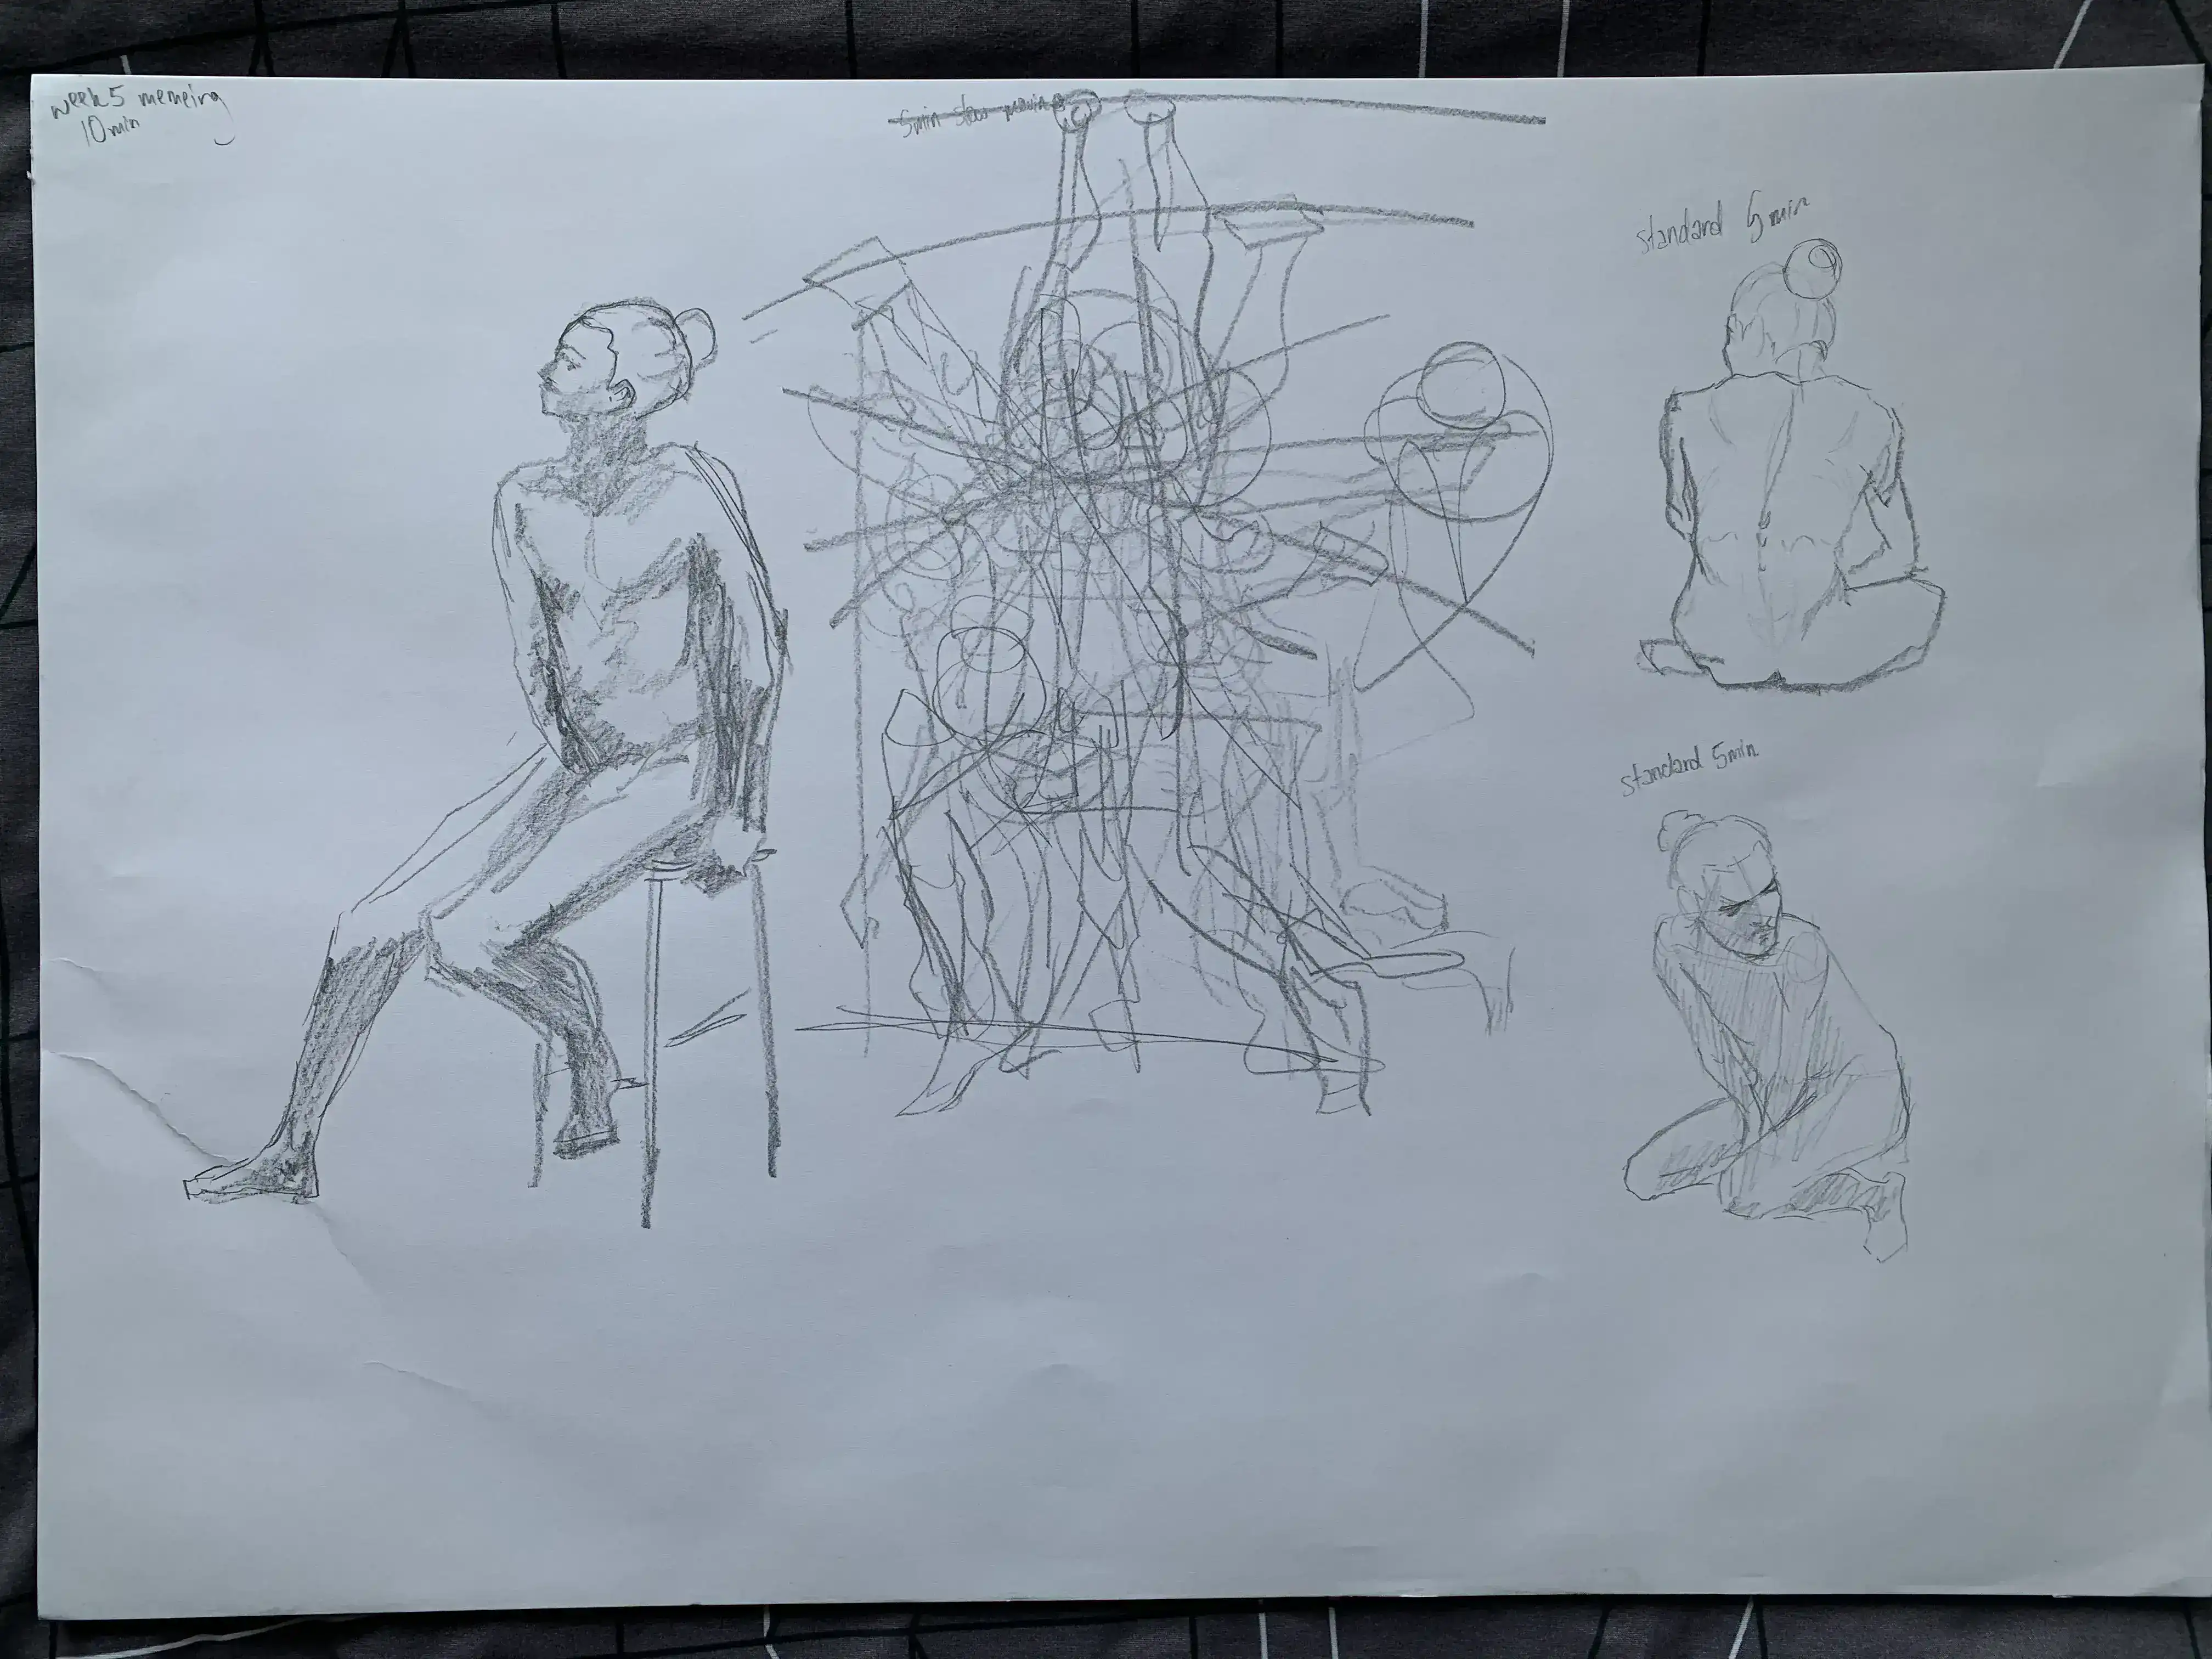 week5 memeing
10min
5min slow
standard 5min
standard 5min